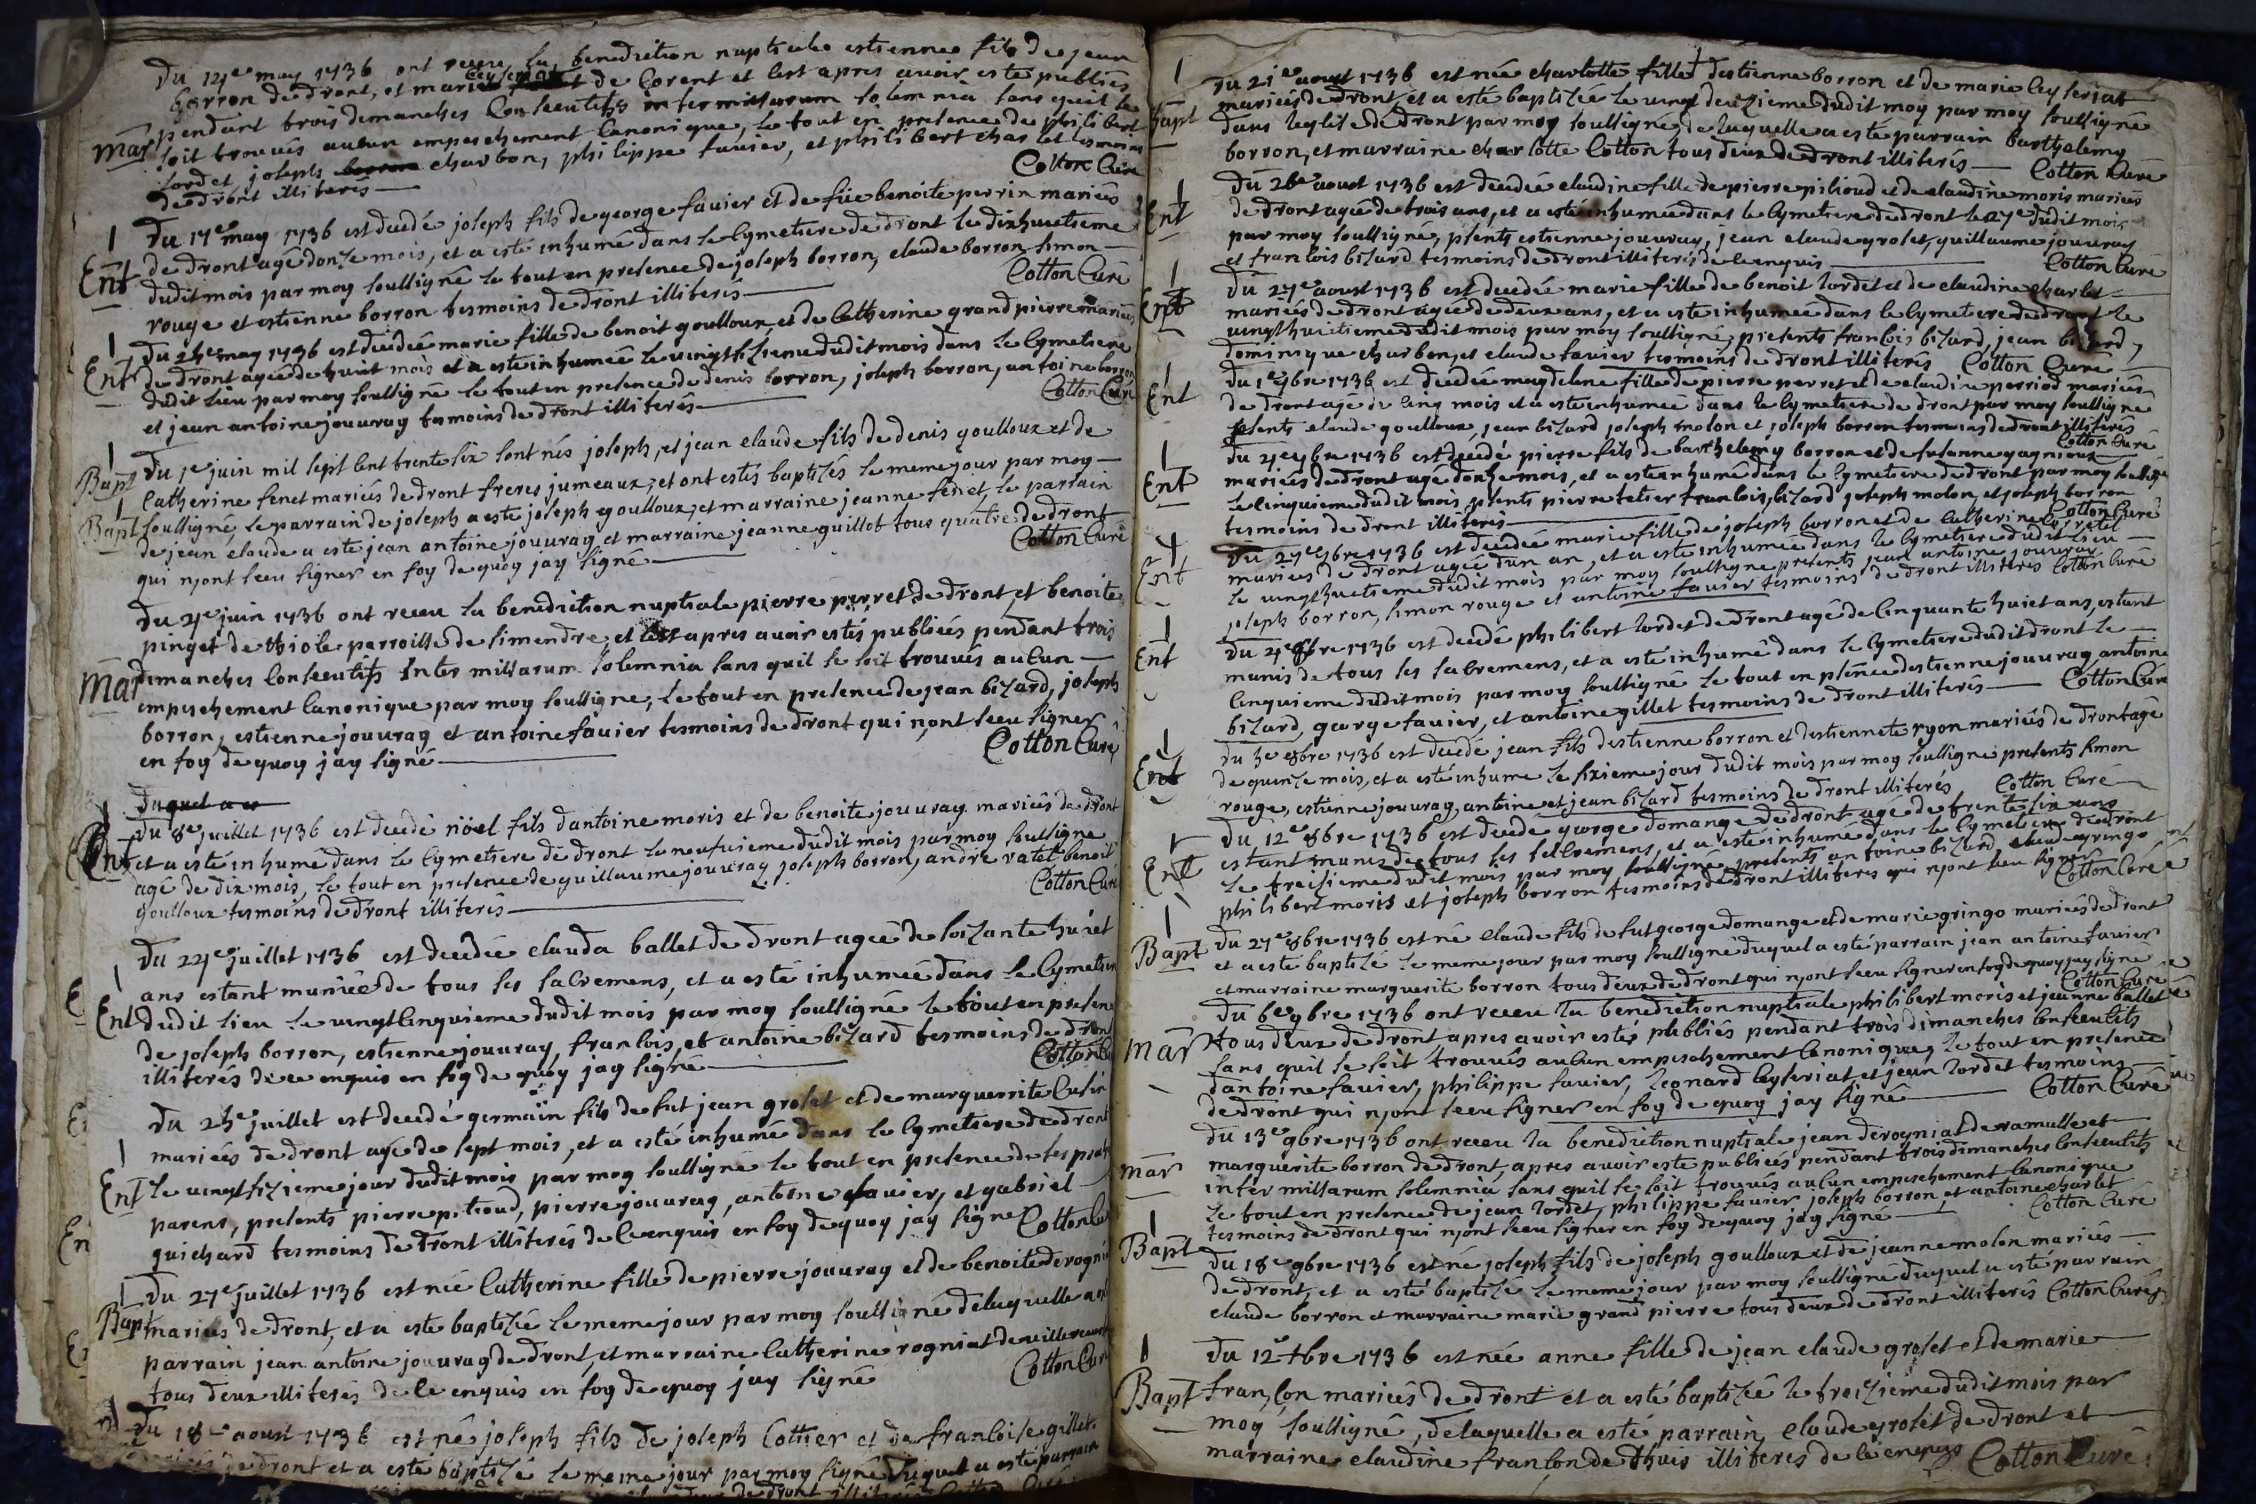 Du 14e may 1736 ont receu la benediction nuptiale estienne fils de jean
borron de dront, et marie leyseriat de Corent et lest apres avoir este publiés
pendant trois dimanches Consecutifs inter missarum solemnia sans quil se
Mar
soit trouvés aucun empeschement Canonique, le tout en presence de philibert
lordet, joseph charbon, philippe favier, et philibert charlet tesmoins
de dront illiterés
Cotton Curé
Ent
Du 17e may 1736 est decedé joseph fils de george favier et de füe benoite perrin mariées
de dront agé donze mois, et a esté inhumé dans le Cymetiere de dront le dixhuictieme
dudit mois par moy soussigné le tout en presence de joseph borron, claude borron simon
rouge et estienne borron tesmoins de dront illiterés
Cotton Curé
Ent
Du 25e may 1736 est decedée marie fille de benoit goulloux et de Catherine grandpierre mariées
de dront agée de huict mois et a esté inhumée le vingt sizieme dudit mois dans le Cymetiere
dudit lieu par moy soussigné le tout en presence de denis borron, joseph borron, antoine borron
et jean antoine jouuray tesmoins de dront illiterés
Cotton Curé
Bapt
Bapt
Du 1e juin mil sept cent trente six sont nés joseph, et jean claude fils de denis goulloux et de
Catherine fenet mariés de dront freres jumeaux, et ont estés baptizés le meme jour par moy
soussigné, le parrain de joseph a esté joseph goulloux, et marraine jeanne fenet, le parrain
de jean claude a esté jean antoine jouuray et marraine jeanne guillot tous quatre de dront
qui n'ont sceu signer en foy de quoy jay signé
Cotton Curé
Mar
Du 4e juin 1736 ont receu la benediction nuptiale pierre perret de dront, et benoite
pinget de thiole parroisse de simandre, et lest apres avoir estés publiées pendant trois
dimanches Consecutifs Inter missarum solemnia sans quil se soit trouvés aucun
empeschement Canonique par moy soussigne, le tout en presence de jean bizard, joseph
borron, estienne jouuray et antoine favier tesmoins de dront qui n'ont sceu signer
en foy de quoy jay signé
Cotton Curé
Ent
Du 8e juillet 1736 est decedé nöel fils dantoine moris et de benoite jouuray mariées de dront
et a esté inhumé dans le Cymetiere de dront le neufvieme dudit mois par moy soussigne
agé de dix mois, le tout en presence de guillaume jouuray joseph borron, andre ratel benoit
goulloux tesmoins de dront illiterés
Cotton Curé
Ent
Du 24e juillet 1736 est decedée clauda ballet de dront agée de soixante huiet
ans estant muniée de tous les sacremens, et a esté inhumée dans le Cymetiere
dudit lieu le vingt cinquieme dudit mois par moy soussigné le tout en presence
de joseph borron, estienne jouuray, francois, et antoine bizard tesmoins de dront
illiterés de ce enquis en foy de quoy jay signé
Cotton Cu
Ent
Du 25e juillet est decedé germain fils de fut jean grolet et de marguerrite Cusin
mariées de dront agé de sept mois, et a esté inhumé dans le Cymetiere de dront
le vingt sizieme jour dudit mois par moy soussigné le tout en presence de ses proches
parens, presents pierre pitioud, pierre jouuray, antoine favier, et gabriel
guichard tesmoins de dront illiterés de ce enquis en foy de quoy jay signé
Cotton Cu
Bapt
Du 27e juillet 1736 est née Catherine fille de pierre jouuray et de benoite derognia
mariés de dront, et a esté baptizée le meme jour par moy soussigné de laquelle a esté
parrain jean antoine jouuray de dront, et marraine Catherine rogniat de
tous deux illiterés de ce enquis en foy de quoy jay signé
Cotton Curé
Du 18e aoust 1736 est né joseph fils de joseph Cottier et de francoise gillet
de dront et a esté baptizé le meme jour par moy signé duquel a esté parrain
Bapt
Du 21e aoust 1736 est née charlotte fille destienne borron et de marie leyseriat
mariés de dront et a esté baptizée le vingt deuzieme dudit moy par moy soussigné
dans leglise de dront par moy soussigné, de laquelle a esté parrain barthelemy
borron, et marraine charlotte Cotton tous deux de dront illiterés
Cotton Curé
Ent
Du 26e aoust 1736 est decedée claudine fille de pierre pitioud et de claudine moris mariées
de dront agée de trois ans, et a esté inhumée dans le Cymetiere de dront le 27e dudit mois
par moy soussigné, psents estienne jouuray, jean claude grolet, guillaume jouuray
et francois bizard tesmoins de dront illiterés de ce enquis
Cotton Curé
Ent
Du 27e aoust 1736 est decedée marie fille de benoit lordet et de claudine charlet
mariés de dront agée de deux ans, et a esté inhumée dans le Cymetiere de dront le
vingt huictieme dudit mois par moy soussigné, presents francois bizard, jean bizard,
dominique charbon, et claude favier tesmoins de dront illiterés Cotton Curé
Ent
Du 1e 7bre 1736 est decedée magdelene fille de pierre perret et de claudine perriod mariées
de dront agé de cinq mois et a esté inhumée dans le Cymetiere de dront par moy soussigné
psents claude goulloux, jean bizard joseph molon et joseph borron tesmoins de dront illiterés
Cotton Curé
Ent
Du 4e 7bre 1736 est decedé pierre fils de barthelemy borron et de susanne gagnioux
mariées de dront agé donze mois, et a esté inhumé dans le Cymetiere de dront par moy soussigné
le cinquieme dudit mois, psents pierre tetier francois bizard joseph molon, et joseph borron
tesmoins de dront illiterés
Cotton Curé
Ent
Du 27e 7bre 1736 est decedée marie fille de joseph borron et de Catherine
mariées de dront agée dun an, et a esté inhumée dans le Cymetiere dudit lieu
le vingt huictieme dudit mois par moy soussigné presents jean antoine jouuray
joseph borron, simon rouge et antoine favier tesmoins de dront illiterés Cotton Curé
Ent
Du 4e 8bre 1736 est decedé philibert lordet de dront agé de Cinquante huict ans, estant
munis de tous les sacremens, et a esté inhumé dans le Cymetiere dudit dront le
Cinquieme dudit mois par moy soussigné le tout en psence destienne jouuray, antoine
bizard, george favier, et antoine gillet tesmoins de dront illiterés
Cotton Curé
Ent
Du 5e 8bre 1736 est decedé jean fils destienne borron et destiennete ryon mariés de dront agé
de quinze mois, et a esté inhumé le sixieme jour dudit mois par moy soussigné presents simon
rouge, estienne jouuray, antoine et jean bizard tesmoins de dront illiterés
Cotton Curé
Ent
Du 12e 8bre 1736 est decedé george domange de dront agé de trente six ans
estant munis de tous les sacremens, et a esté inhumé dans le Cymetiere de dront
le treizieme dudit mois par moy soussigné, presents antoine bizard, claude gringo
philibert moris et joseph borron tesmoins de dront illiteres qui n'ont sceu signer
Cotton Curé
Bapt
Du 27e 8bre 1736 est né claude fils de fut george domange et de marie gringo mariées de dront
et a esté baptizé le meme jour par moy soussigné duquel a esté parrain jean antoine favier
et marraine marguerite borron tous deux de dront qui n'ont sceu signer en foy de quoy jay signé
Cotton Curé
Mar
Du 6e 9bre 1736 ont receu la benediction nuptiale philibert moris et jeanne ballet
tous deux de dront apres avoir estés publiés pendant trois dimanches Consecutifs
sans quil se soit trouvés aucun empeschement Canonique, le tout en presence
dantoine favier, philippe favier, leonard leyseriat et jean lordet tesmoins
de dront qui n'ont sceu signer en foy de quoy jay signé
Cotton Curé
Mar
Du 13e 9bre 1736 ont receu la benediction nuptiale jean derogniat de ramasse et
marguerite borron de dront, apres avoir esté publiées pendant trois dimanches Consecutifs
inter missarum solemnia sans quil se soit trouvés aucun empeschement Canonique
le tout en presence de jean lordet, philippe favier joseph borron et antoine charlet
tesmoins de dront qui n'ont sceu signer en foy de quoy jay signé
Cotton Curé
Bapt
Du 18e 9bre 1736 est né joseph fils de joseph goulloux et de jeanne molon mariés
de dront, et a esté baptizé le meme jour par moy soussigné duquel a esté parrain
claude borron et marraine marie grand pierre tous deux de dront illiterés Cotton Curé
Bapt
Du 12e Xbre 1736 est née anne fille de jean claude grolet et de marie
françon mariées de dront et a esté baptizée le treizieme dudit mois par
moy soussigné, de laquelle a esté parrain claude grolet de dront et
marraine claudine françon de thuis illiteres de ce enquis Cotton Curé